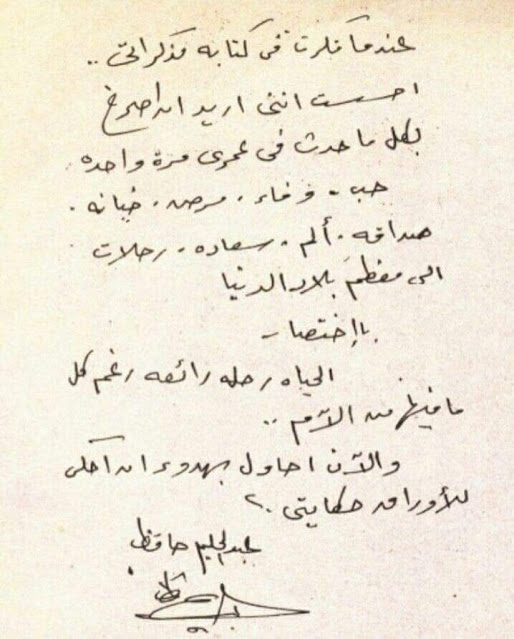 عندما فكرت فى كتابه مذكراتى ..
احسست اننى اريد ان اصرخ
بكل ما حدث فى عمرى مرة واحده.
حب . وفاء . مرض . خيانه .
صداقه . ألم . سعاده . رحلات
الى معظم بلاد الدنيا
بإختصار
الحياه رحله رائعه رغم كل
ما فيها من آلام ..
والآن احاول بهدوء ان احكى
للأوراق حكايتى ..
عبدالحليم حافظ